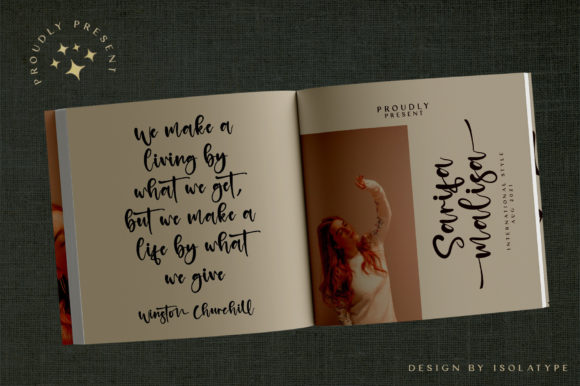 PROUDLY PRESENT
We make a
living by
what we get,
but we make a
life by what
we give
Winston Churchill
PROUDLY
PRESENT
Sarifa
malisa
INTERNATIONAL STYLE
AUG 2021
DESIGN BY ISOLATYPE